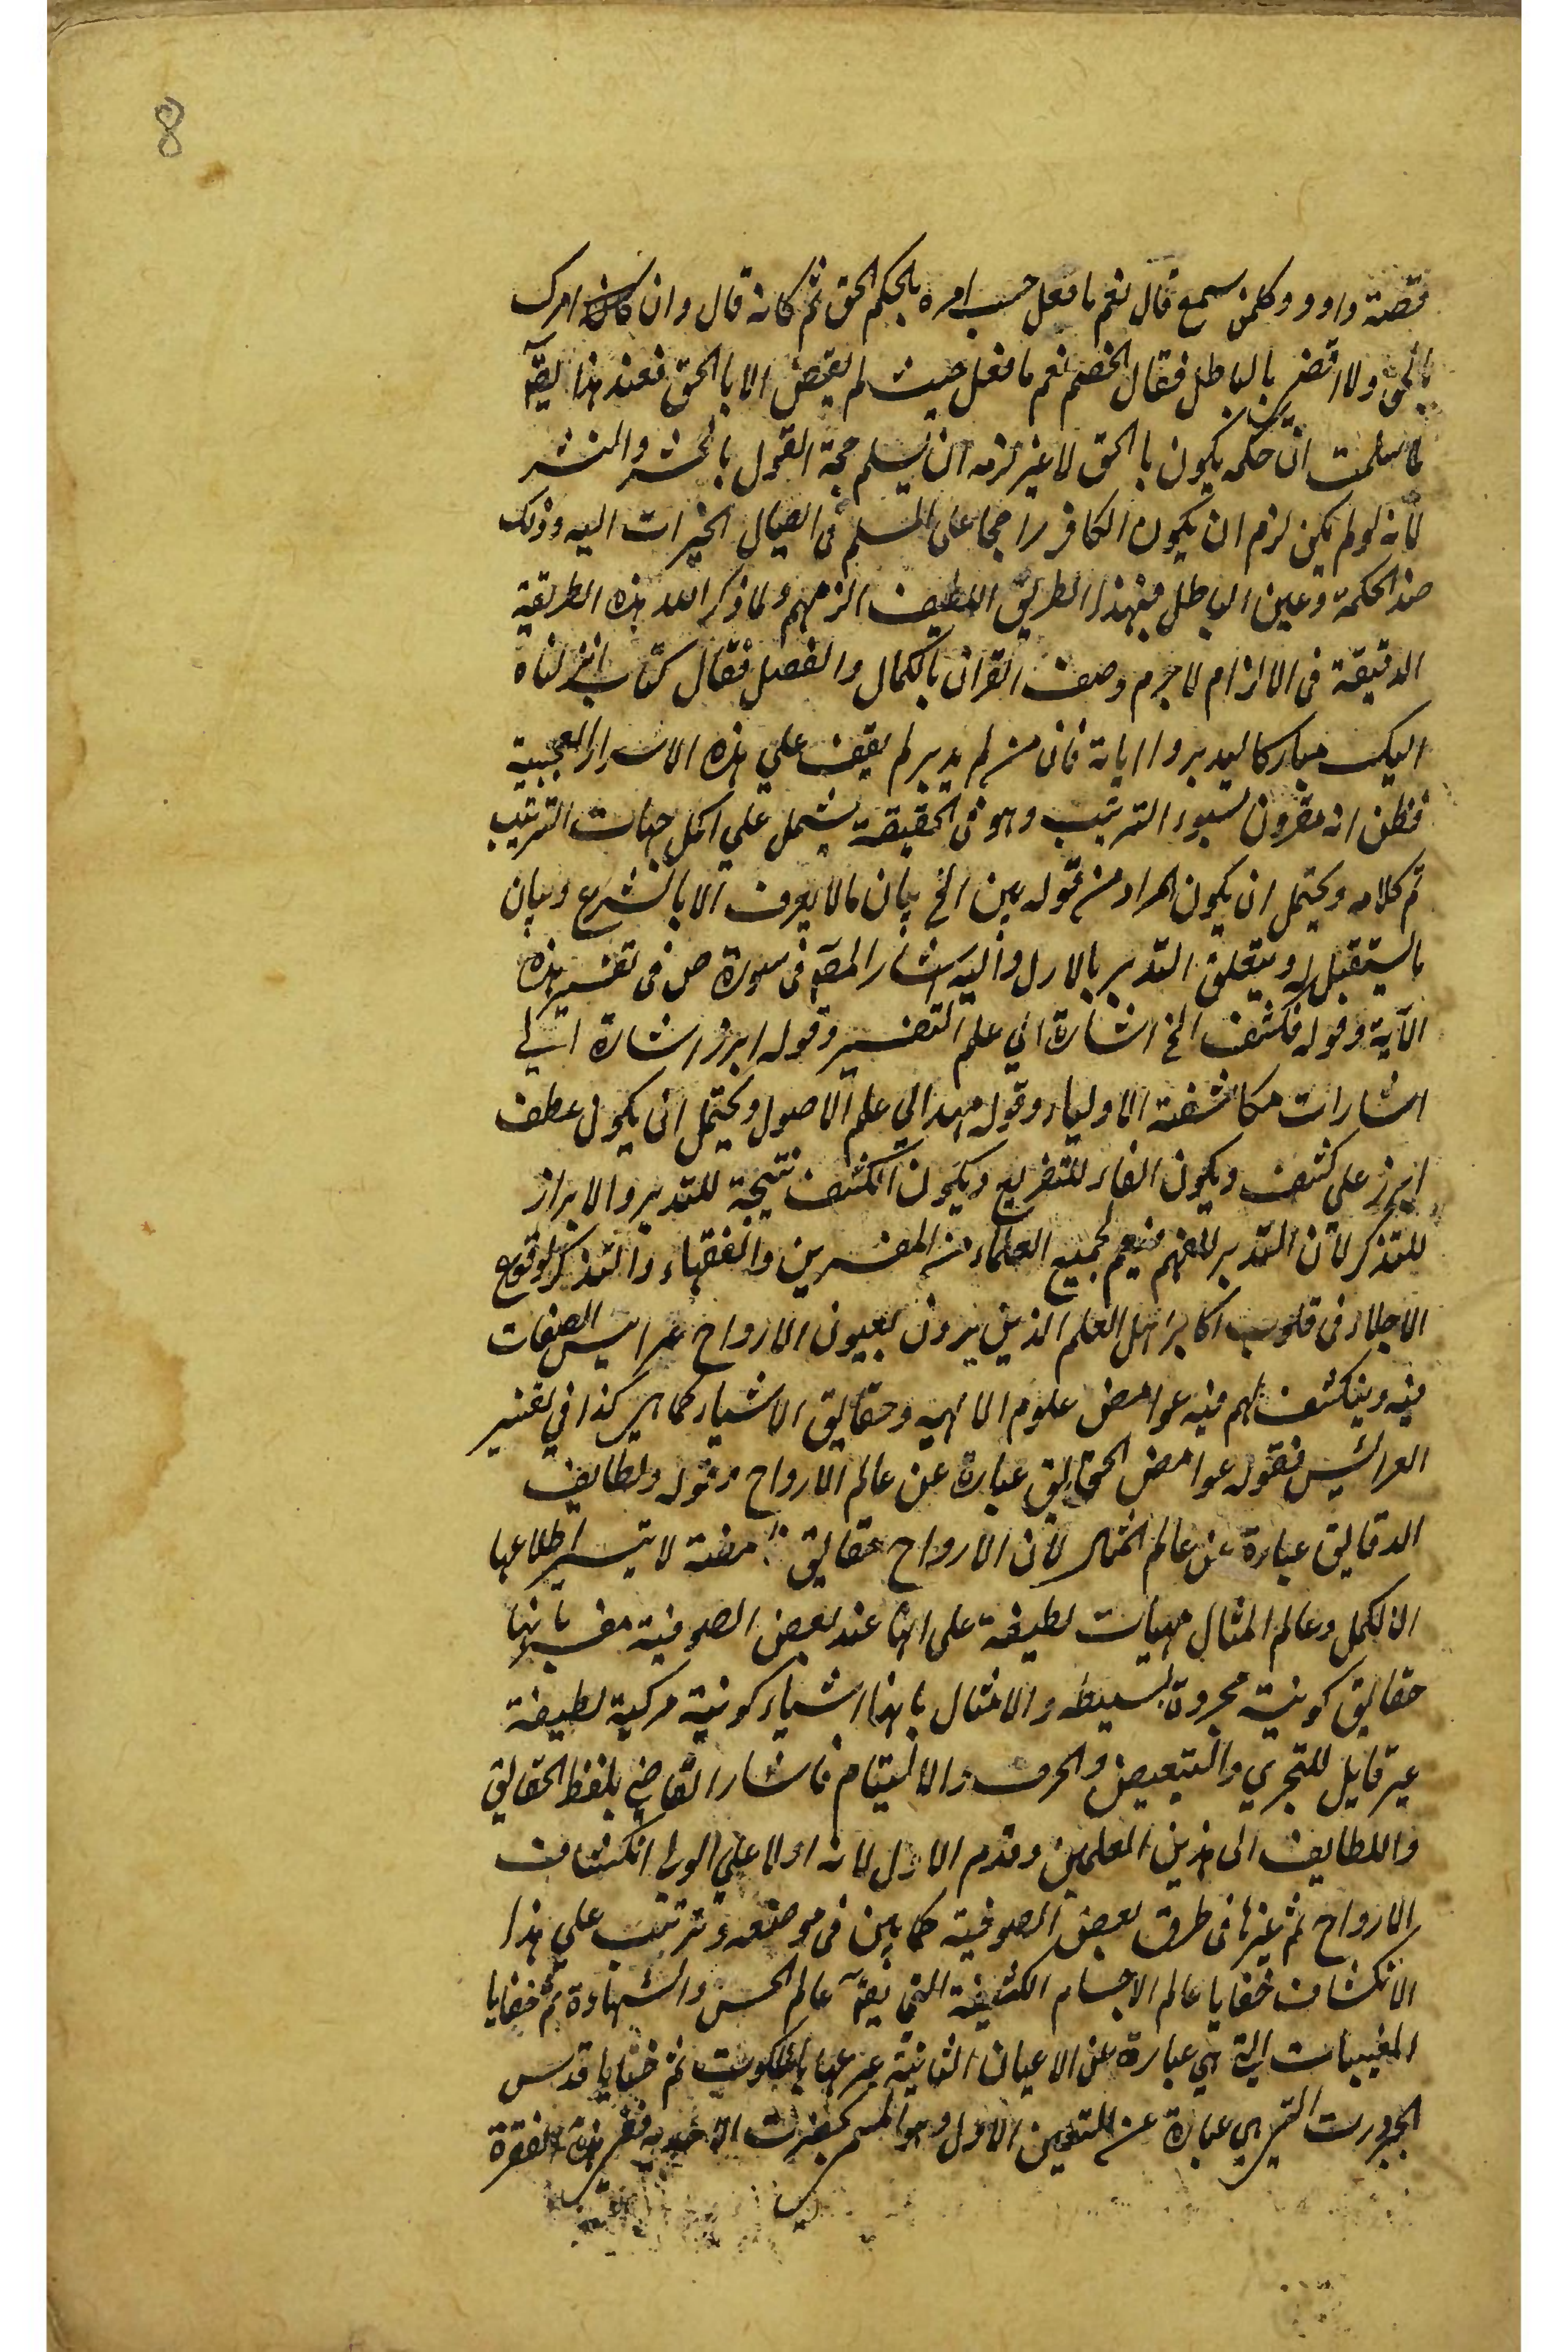 8
قصة داود وكلمن سمع قال نعم ما فعل حسب امره بالحكم الحق ثم كانه قال وان كان امرك
بالحق ولا اقضى بالباطل فقال الخصم نعم ما فعل حيث لم يقض الا بالحق فعند هذا يقآ
لما سلمت ان حكمه يكون بالحق لا غير لزمه ان يسلم صحة القول بالحشر والنشر
لانه لو لم يكن لزم ان يكون الكافر راجحا على المسلم فى ايصال الخيرات اليه وذلك
ضد الحكمة وعين الباطل فبهذا الطريق اللطيف الزمهم ولما ذكر الله هذه الطريقة
الدقيقة فى الالزام لا جرم وصف القران بالكمال والفضل فقال كتاب انزلناه
اليك مباركا ليدبروا اياته فان من لم يدبر لم يقف علي هذه الاسرار العجيبة
فظن انه مقرون بسوء الترتيب وهو فى الحقيقة يشمل علي اكمل جهات الترتيب
تم كلامه ويحتمل ان يكون المراد من قوله بين الخ بيان ما لا يعرف الا بالشرع وبيان
ما يستقبل له ويتعلق التدبر بالاول واليه اشار المصآ فى سورة ص فى تفسير هذه
الآية وقوله فكشف الخ اشارة الي علم التفسير وقوله ابرز اشارة الي
اشارات مكاشفة الاولياء وقوله مهد الي علم الاصول ويحتمل ان يكون عطف
ابرز على كشف ويكون الفاء للتفريع ويكون الكشف نتيجة للتدبر والابراز
للتذكر لان التدبر للفهم فيعم لجميع العلماء من المفسرين والفقهاء والتذكر لوقوع
الاجلاء فى قلوب اكابر اهل العلم الذين يرون بعيون الارواح عرايس الصفات
فيه وينكشف لهم فيه غوامض علوم الالهيه وحقايق الاشياء كما هي كذا في تفسير
العرائس فقوله غوامض الحقايق عبارة عن عالم الارواح وقوله ولطايف
الدقايق عبارة عن عالم المثال لان الارواح حقايق غامضة لا يتيسر اطلاعها
الا لكمل وعالم المثال مهيات لطيفة على انها عند بعض الصوفية مفسر بانها
حقايق كونية مجردة بسيطه والامثال بانها اشياء كونية مركبة لطيفة
غير قابل للتجزي والتبعيض والخرق والالتيام فاشار القاضي بلفظ الحقايق
واللطايف الى هذين العلمين وقدم الاول لانه اولا علي الورا انكشاف
الارواح ثم غيرها فى طرق بعض الصوفية كما بين فى موضعه وترتب علي هذا
الانكشاف خفايا عالم الاجسام الكثيفة التي يقآ عالم الحس والشهادة ثم خفايا
المغيبات التي هي عبارة عن الاعيان الثابتة عبر عنها بالملكوت ثم خفايا قدس
الجبروت التي هي عبارة عن التعين الاول وهو المسمى بحضرت الاحديه ففى هذه الفقرة